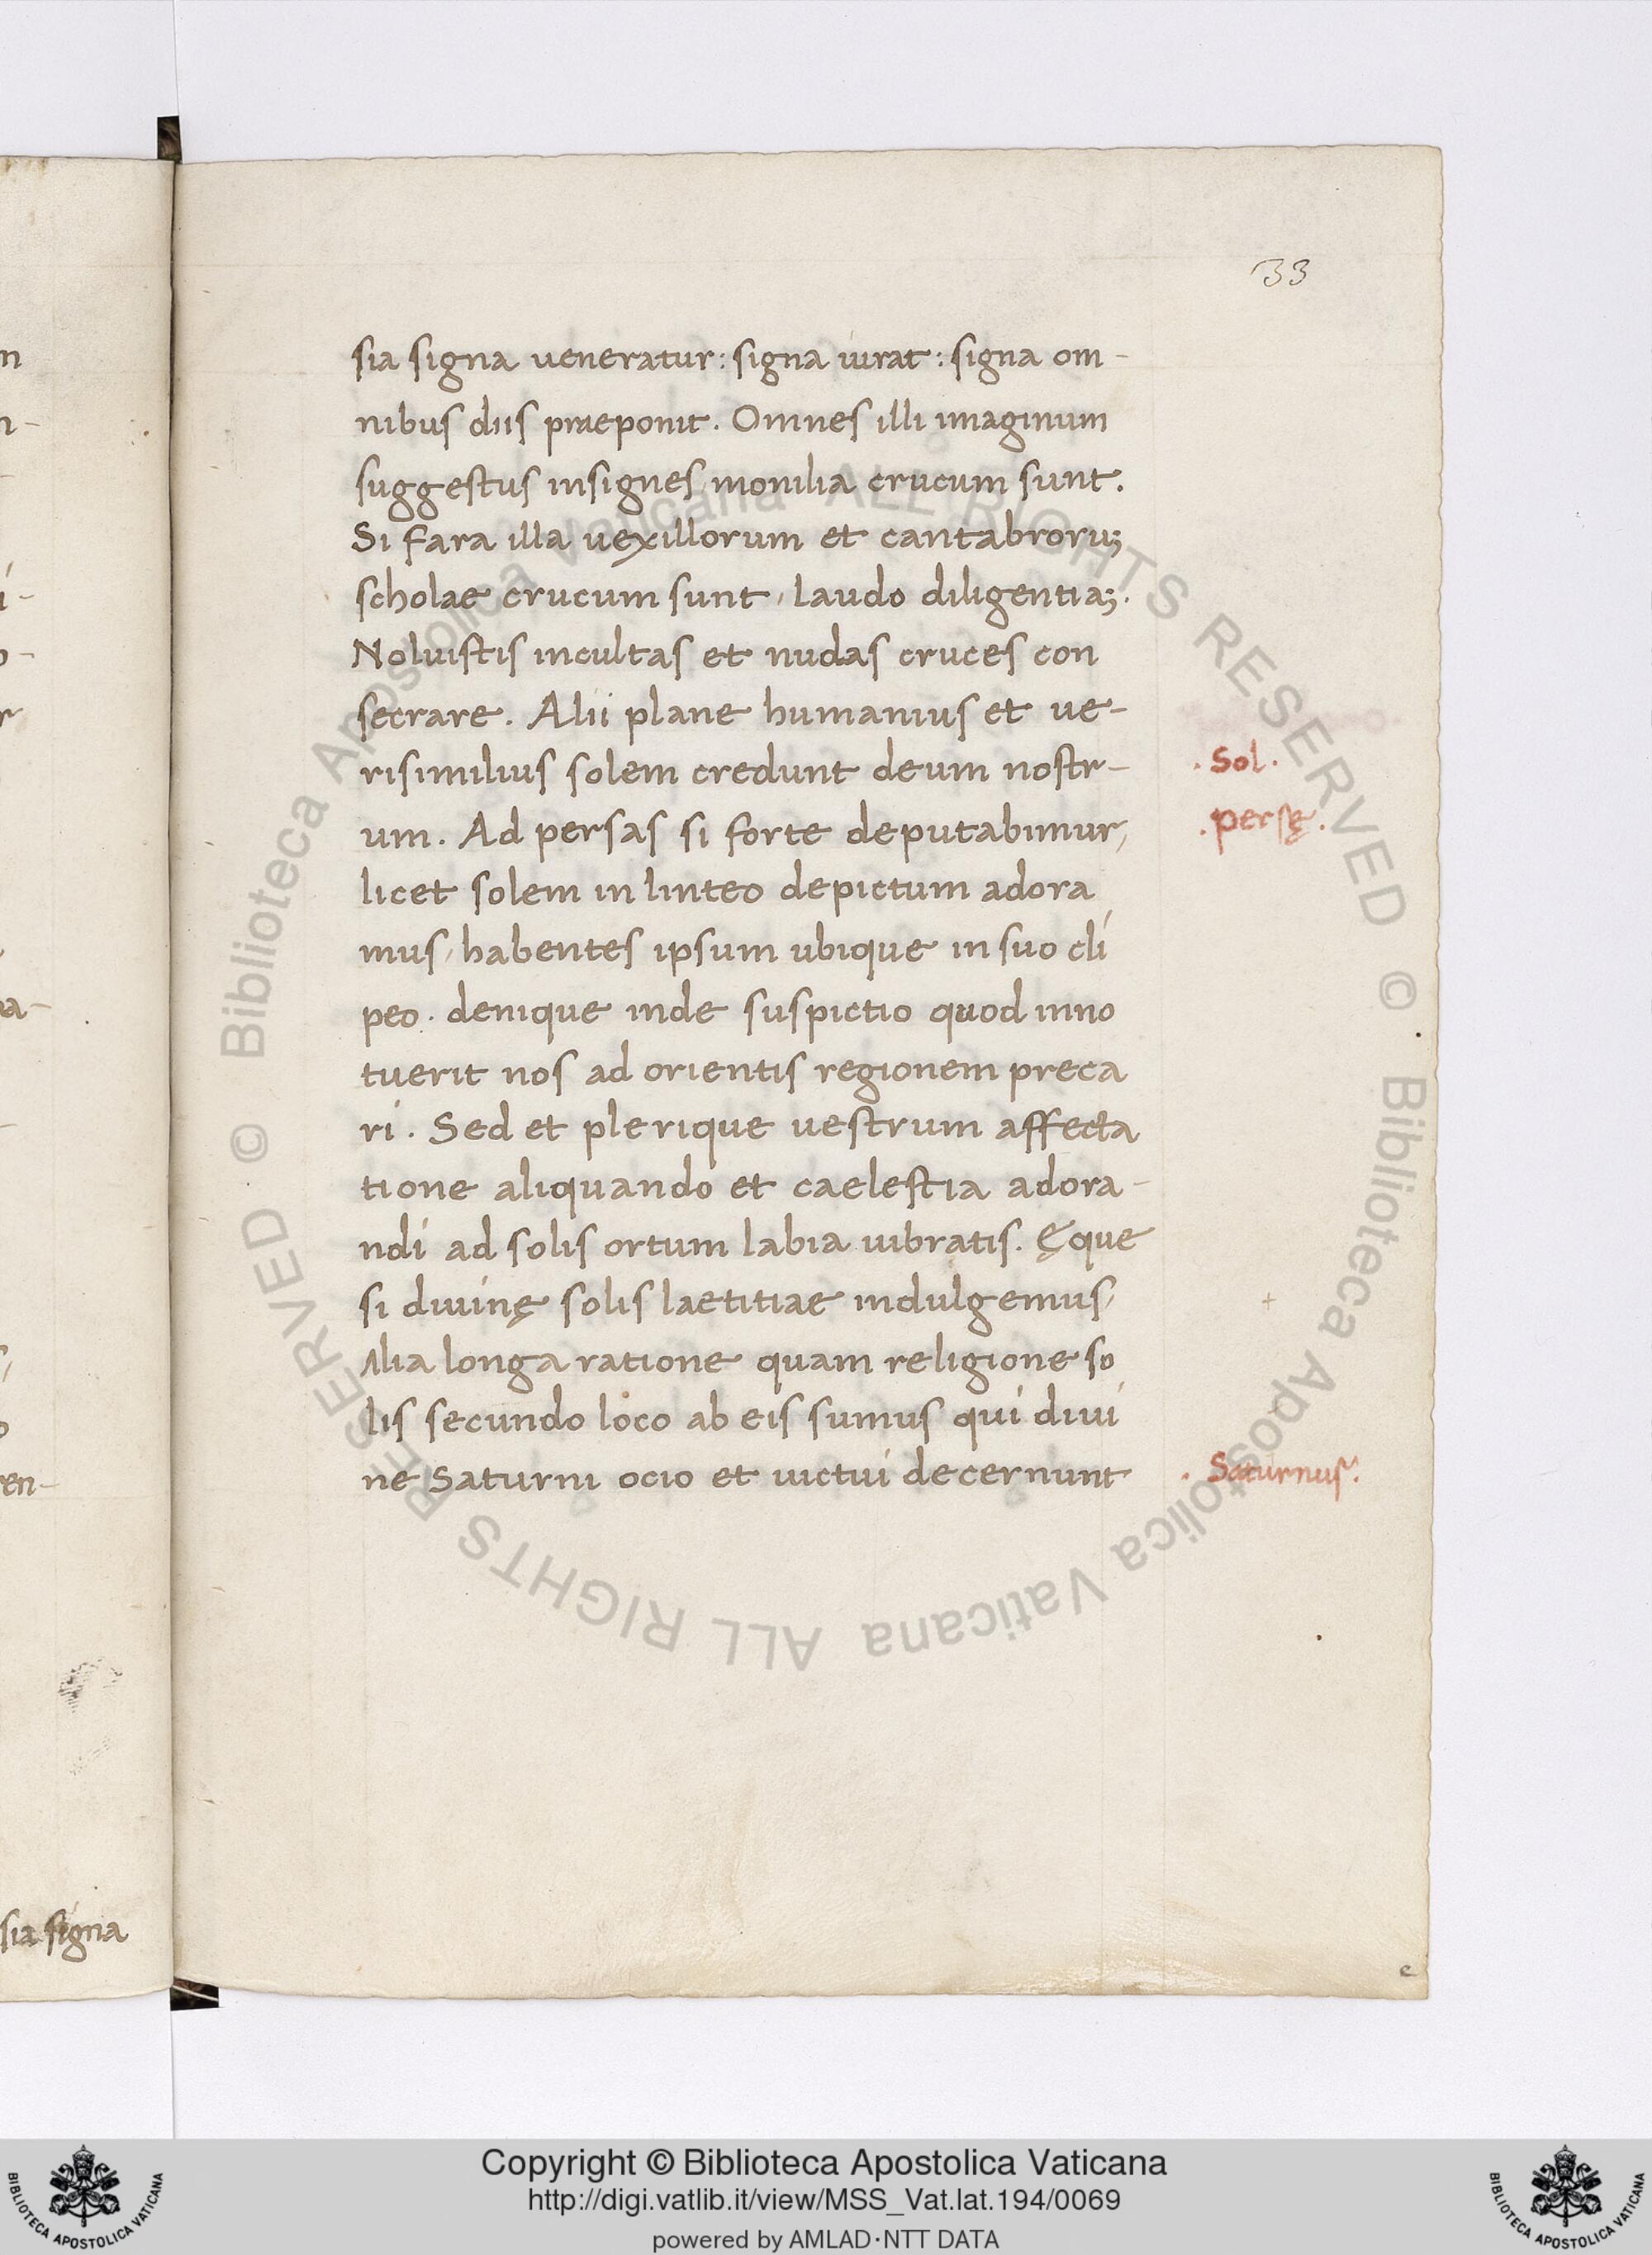 33
sia signa ueneratur: signa iurat: signa om-
nibus diis praeponit. Omnes illi imaginum
suggestus insignes monilia crucum sunt.
Si fara illa uexillorum et cantabroruꝫ
scholae crucum sunt, laudo diligentiaꝫ.
Noluistis incultas et nudas cruces con
secrare. Alii plane humanius et ue-
risimilius solem credunt deum nostr-
um. Ad persas si forte deputabimur,
licet solem in linteo depictum adora
mus, habentes ipsum ubique in suo cli
peo. denique inde suspictio quod inno
tuerit nos ad orientis regionem preca
ri. Sed et plerique uestrum affecta
tione aliquando et caelestia adora-
ndi ad solis ortum labia uibratis. Ęque
si diuinę solis laetitiae indulgemus,
Alia longa ratione quam religione so
lis secundo loco ab eis sumus qui diui
ne Saturni ocio et uictui decernunt
. Sol.
. persę.
. Saturnus.
e
sia signa
© Biblioteca Apostolica Vaticana ALL RIGHTS RESERVED
© Biblioteca Apostolica Vaticana ALL RIGHTS RESERVED
Copyright © Biblioteca Apostolica Vaticana
http://digi.vatlib.it/view/MSS_Vat.lat.194/0069
powered by AMLAD·NTT DATA
BIBLIOTECA APOSTOLICA VATICANA
BIBLIOTECA APOSTOLICA VATICANA